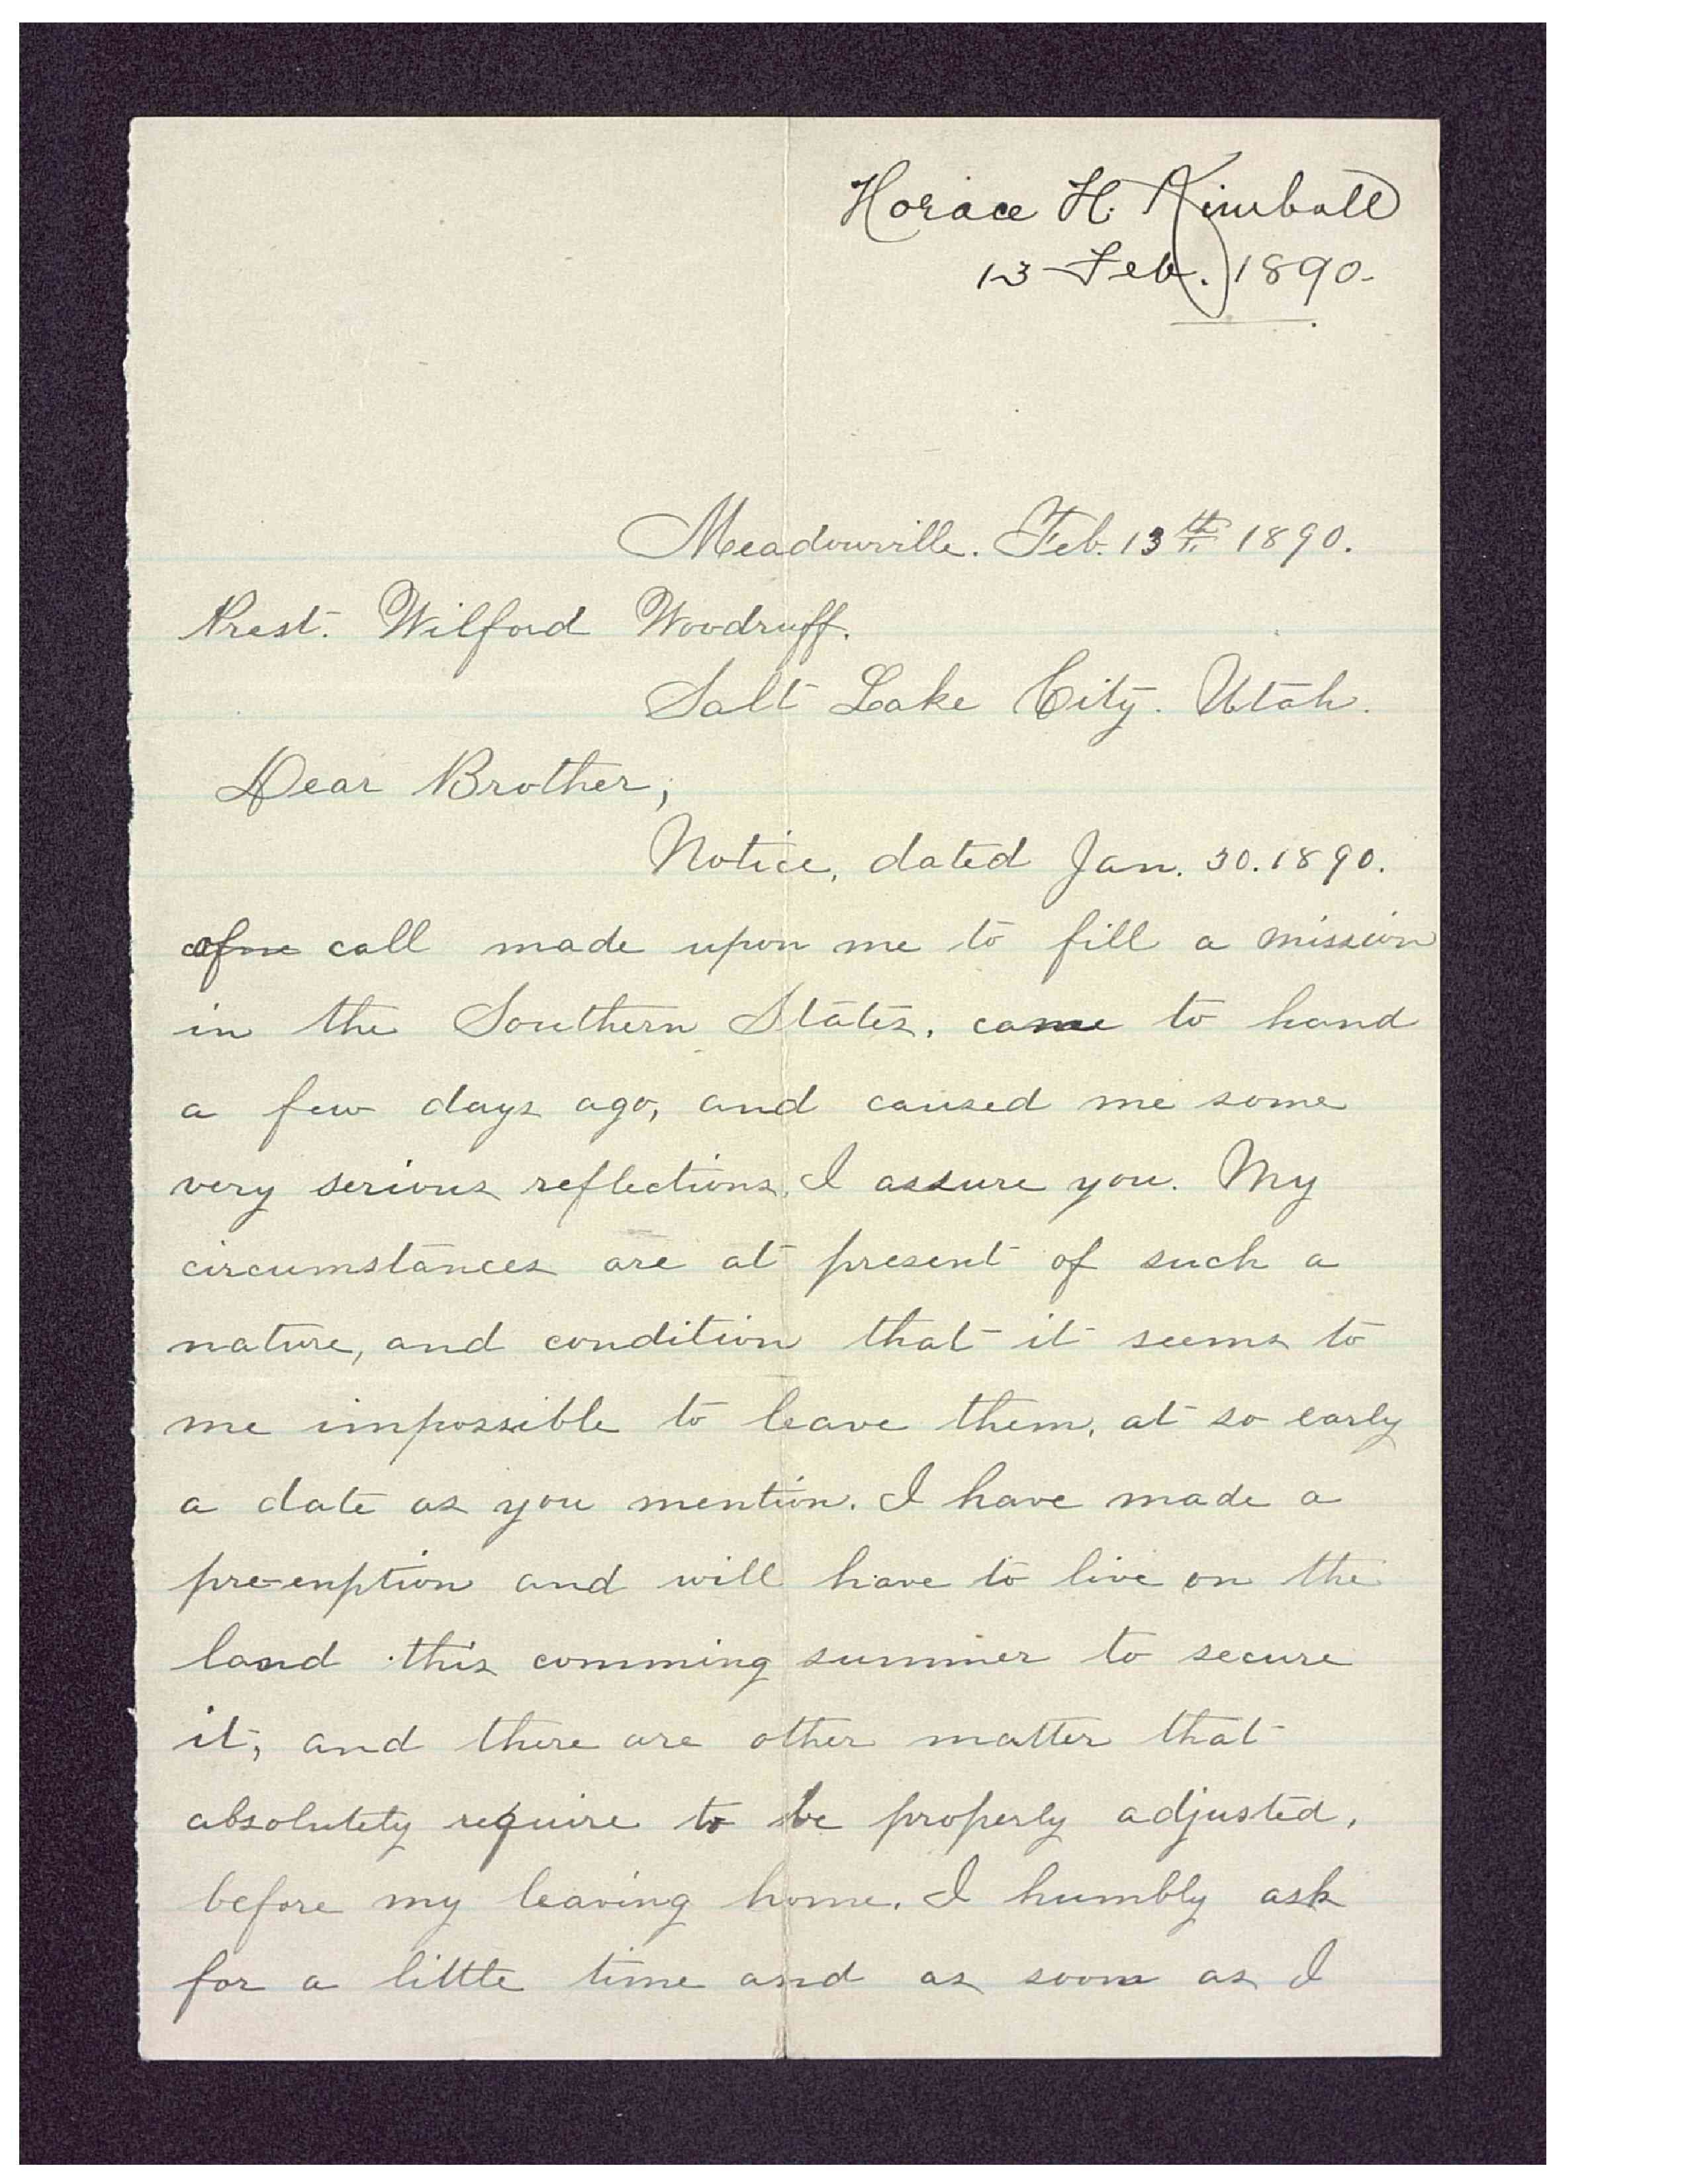 Horace H. Kimball
13 Feb. 1890.
Meadowville. Feb. 13th 1890.
Prest. Wilford Woodruff.
Salt Lake City. Utah.
Dear Brother,
Notice, dated Jan. 30. 1890.
call made upon me to fill a mission
in the Southern States, came to hand
a few days ago, and caused me some
very serious reflections, I assure you. My
circumstances are at present of such a
nature, and condition that it seems to
me impossible to leave them, at so early
a date as you mention. I have made a
pre-enption and will have to live on the
land this comming summer to secure
it, and there are other matter that
absolutety require to be properly adjusted,
before my leaving home. I humbly ask
for a little time and as soon as I